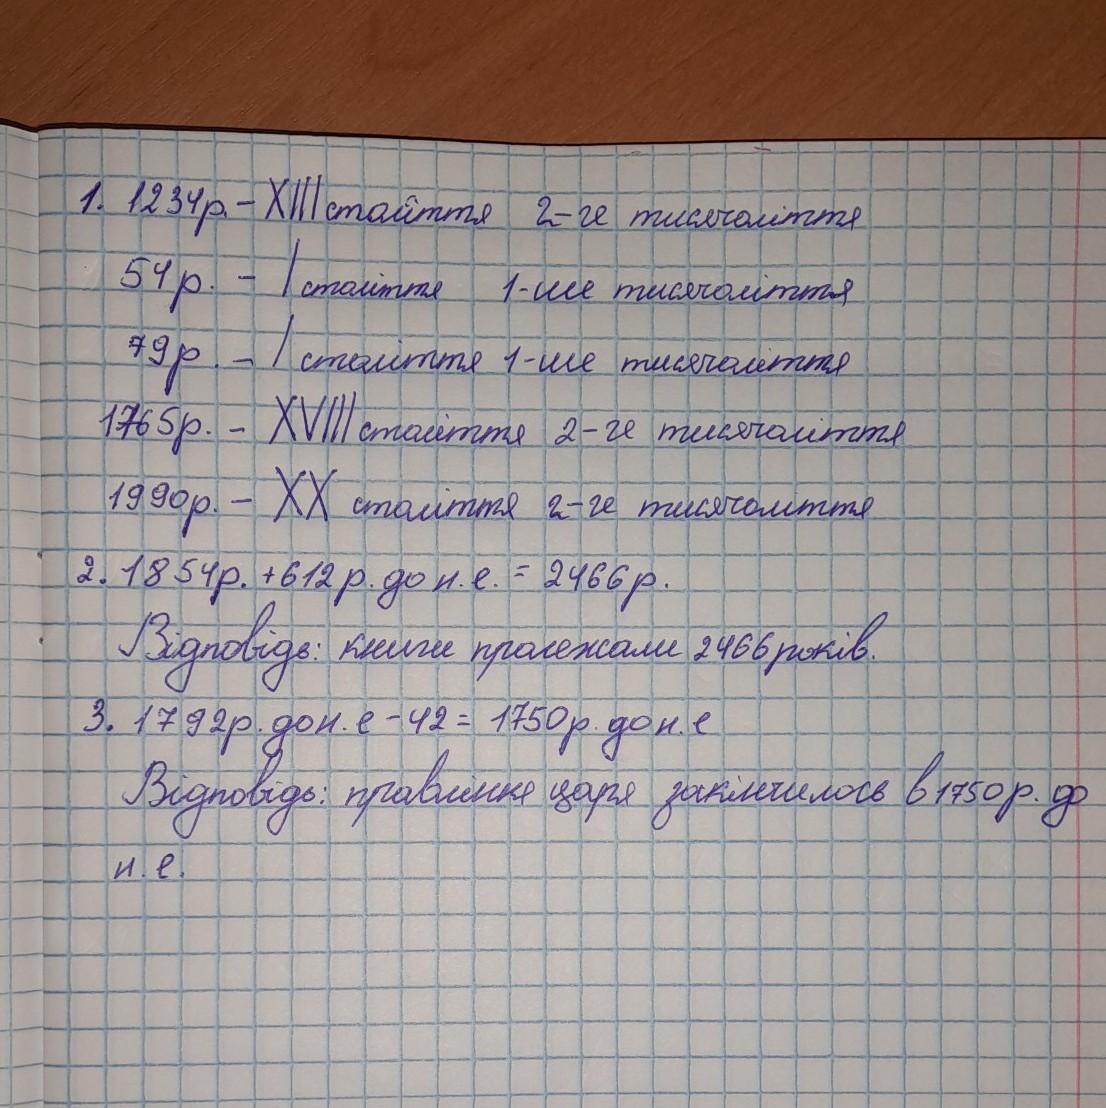 1. 1234р. - XIII століття 2-ге тисячоліття
54р. - I століття 1-ше тисячоліття
79р. - I століття 1-ше тисячоліття
1765р. - XVIII століття 2-ге тисячоліття
1990р. - XX століття 2-ге тисячоліття
2. 1854р. + 612р. до н.е. = 2466р.
Відповідь: книги пролежали 2466 років.
3. 1792р. до н.е - 42 = 1750р. до н.е
Відповідь: правління царя закінчилось в 1750р. до
н.е.